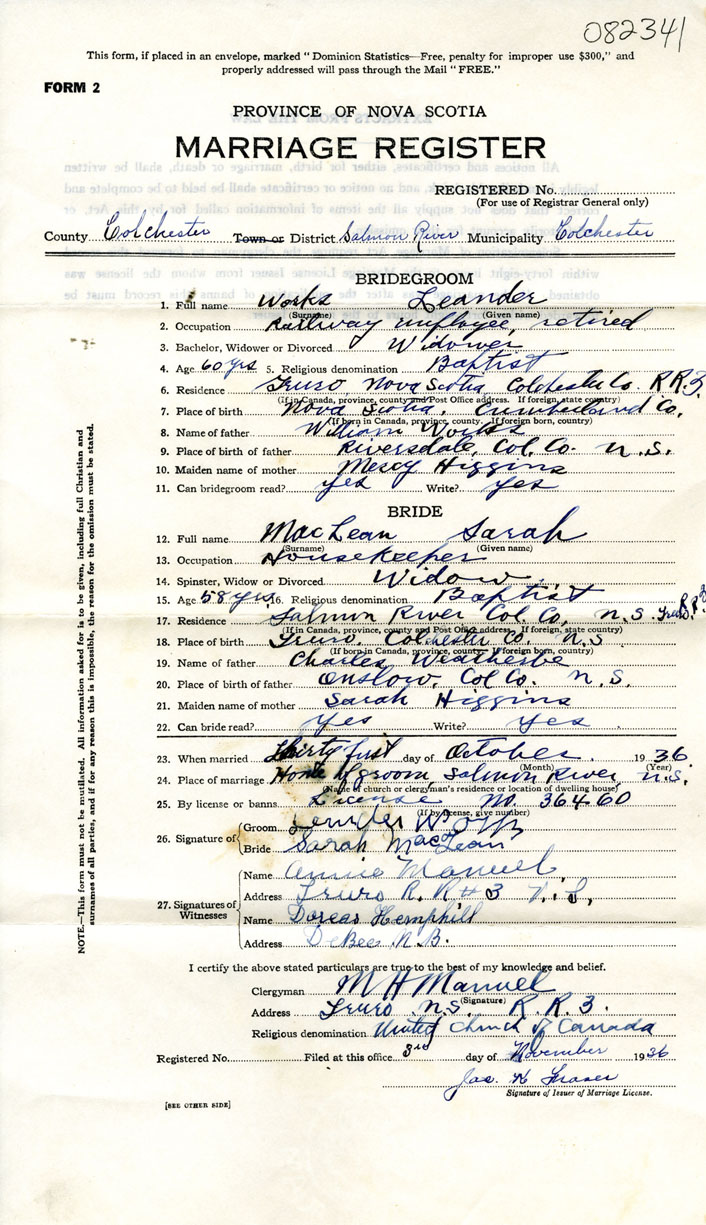 082341
This form, if placed in an envelope, marked "Dominion Statistics—Free, penalty for improper use $300," and
properly addressed will pass through the Mail "FREE."
FORM 2
PROVINCE OF NOVA SCOTIA
MARRIAGE REGISTER
REGISTERED No.
(For use of Registrar General only)
County Colchester Town or District Salmon River Municipality Colchester
BRIDEGROOM
1. Full name Works Leander
(Surname) (Given name)
2. Occupation Railway employee, retired
3. Bachelor, Widower or Divorced Widower
4. Age 60 yrs 5. Religious denomination Baptist
6. Residence Truro, Nova Scotia Colchester Co. R R. 3.
(If in Canada, province, county and Post Office address. If foreign, state country)
7. Place of birth Nova Scotia, Cumberland Co,
(If born in Canada, province, county. If foreign born, country)
8. Name of father William Works
9. Place of birth of father Riversdale, Col. Co. N. S.
10. Maiden name of mother Mercy Higgins
11. Can bridegroom read? yes Write? yes
BRIDE
12. Full name MacLean Sarah
(Surname) (Given name)
13. Occupation Housekeeper
14. Spinster, Widow or Divorced Widow
15. Age 58 yrs 16. Religious denomination Baptist
17. Residence Salmon River Col. Co, N. S. Truro R. R. 3
(If in Canada, province, county and Post Office address. If foreign, state country)
18. Place of birth Truro, Colchester Co. N. S
(If born in Canada, province, county. If foreign born, country)
19. Name of father Charles Weatherbe
20. Place of birth of father Onslow, Col. Co. N. S.
21. Maiden name of mother Sarah Higgins
22. Can bride read? yes Write? yes
23. When married Thirty first day of October 1936
(Month) (Year)
24. Place of marriage Home of groom, Salmon River, N.S.
(Name of church or clergyman's residence or location of dwelling house)
25. By license or banns License No. 36460
(If by license, give number)
26. Signature of
Groom Leander Works
Bride Sarah MacLean
27. Signatures of Witnesses
Name Annie Manuel,
Address Truro R. R # 3 N. S,
Name Dorcas Hemphill
Address DeBec N.B.
I certify the above stated particulars are true to the best of my knowledge and belief.
Clergyman M H Manuel
(Signature)
Address Truro N.S. R. R. 3.
Religious denomination United Church of Canada
Registered No. Filed at this office 3rd day of November 1936
Jas. K Fraser
Signature of Issuer of Marriage License.
[SEE OTHER SIDE]
NOTE.—This form must not be mutilated. All information asked for is to be given, including full Christian and
surnames of all parties, and if for any reason this is impossible, the reason for the omission must be stated.